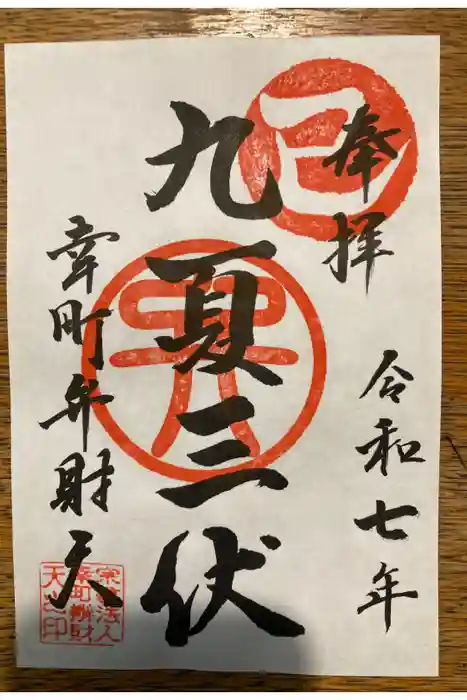 奉拝
令和七年
九夏三伏
幸町弁財天
巳
宗教法人
幸町辨財
天之印